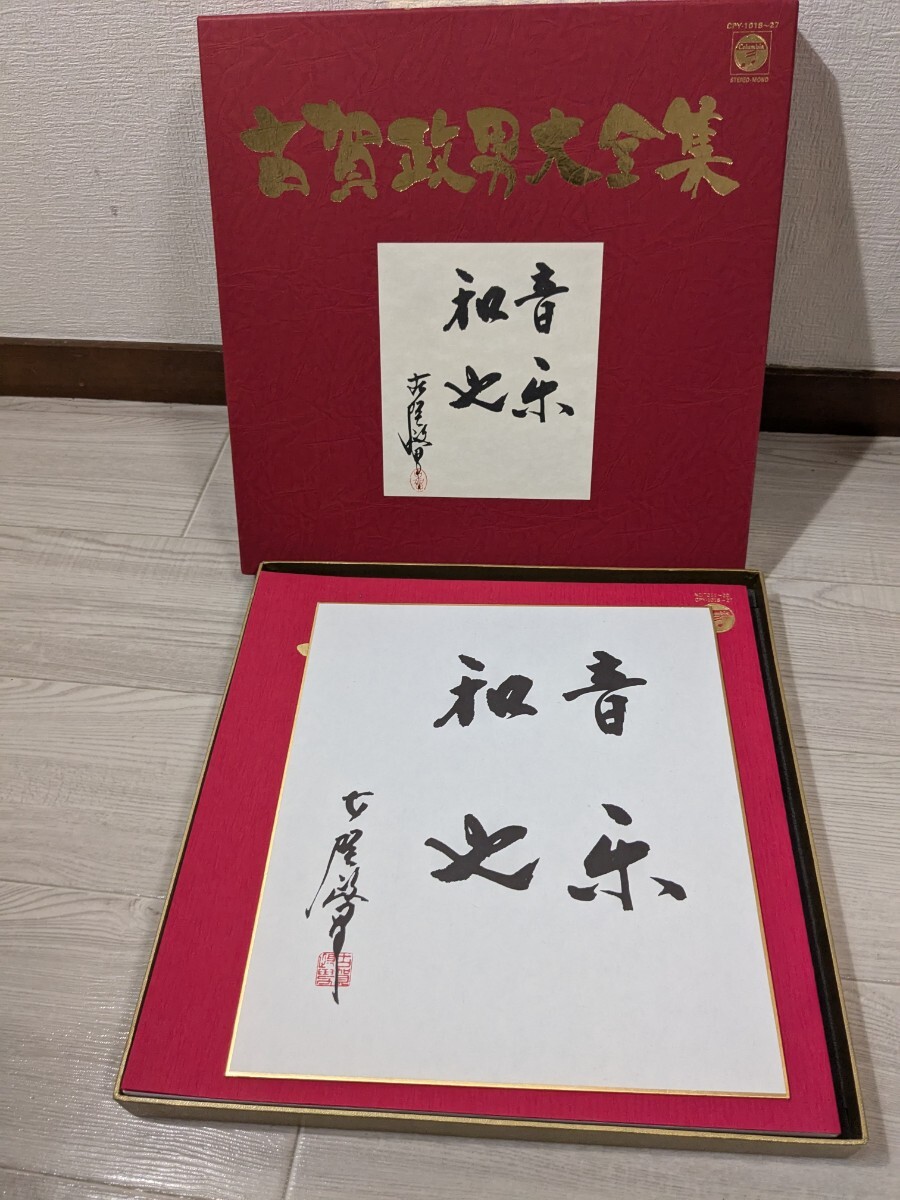 CPY-1018~27
Columbia
STEREO-MONO
古賀政男大全集
音楽
和也
古賀政男
音楽
和也
古賀政男